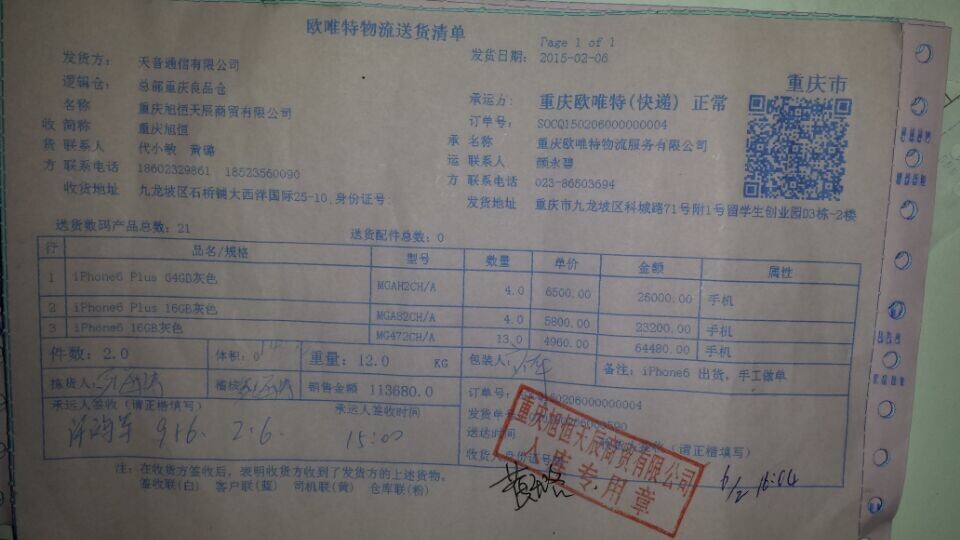 欧唯特物流送货清单
Page 1 of 1
发货日期: 2015-02-06
发货方: 天音通信有限公司
逻辑仓: 总部重庆良品仓
重庆市
承运方: 重庆欧唯特(快递) 正常
名称 重庆旭恒天辰商贸有限公司
订单号: SOCQ150206000000004
收 简称 重庆旭恒
承 名称 重庆欧唯特物流服务有限公司
货 联系人 代小敏 黄璐
运 联系人 颜永碧
方 联系电话 18602329861 18523560090
方 联系电话 023-86503694
收货地址 九龙坡区石桥铺大西洋国际25-10,身份证号:
发货地址 重庆市九龙坡区科城路71号附1号留学生创业园D3栋-2楼
送货数码产品总数: 21 送货配件总数: 0
行 品名/规格 型号 数量 单价 金额 属性
1 iPhone6 Plus 64GB灰色 MGAH2CH/A 4.0 6500.00 26000.00 手机
2 iPhone6 Plus 16GB灰色 MGA82CH/A 4.0 5800.00 23200.00 手机
3 iPhone6 16GB灰色 MG472CH/A 13.0 4960.00 64480.00 手机
件数: 2.0 体积: 0 重量: 12.0 KG 包装人:
备注: iPhone6 出货, 手工做单
拣货人: 稽核 销售金额 113680.0
订单号: 150206000000004
承运人签收 (请正楷填写) 承运人签收时间
发货单号
916. 2.6 15:00
送达时间 (请正楷填写)
收货人身份证号
重庆旭恒天辰商贸有限公司
入库专用章
黄璐 6/2 16:04
注: 在收货方签收后, 表明收货方收到了发货方的上述货物。
签收联(白) 客户联(蓝) 司机联(黄) 仓库联(粉)